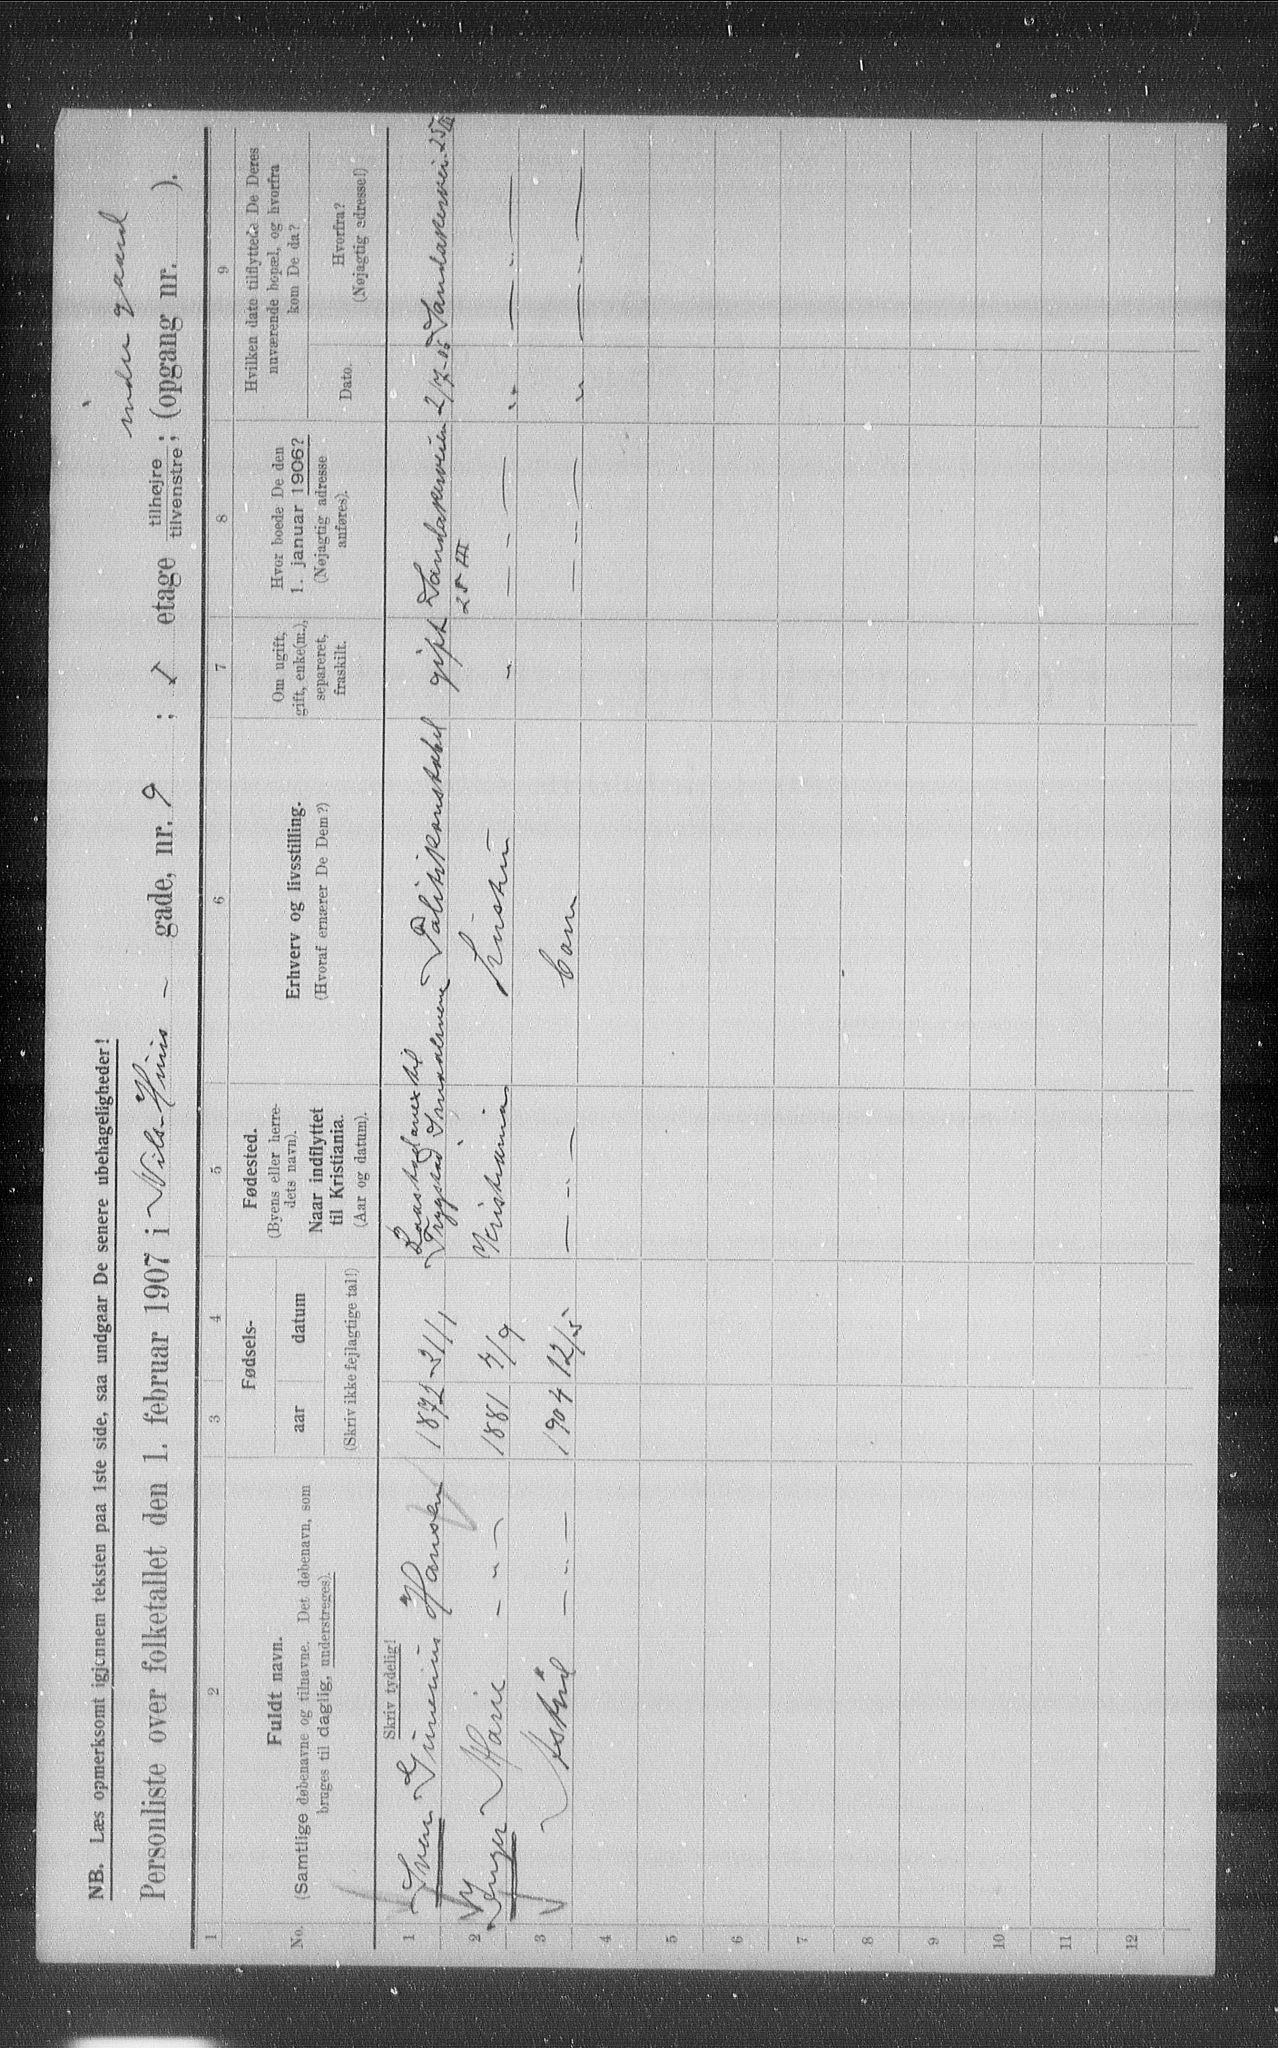 NB. Læs opmerksomt igjennem teksten paa 1ste side, saa undgaar De senere ubehageligheder!
indre gaard
Personliste over folketallet den 1. februar 1907 i Nils Huus - gade, nr. 9 ; 1 etage tilhøjre tilvenstre; (opgang nr. ).
1 2 3 4 5 6 7 8 9
No.
Fuldt navn.
(Samtlige døbenavne og tilnavne. Det døbenavn, som
bruges til daglig, understreges).
Fødsels-
aar datum
(Skriv ikke fejlagtige tal!)
Fødested.
(Byens eller herre-
dets navn).
Naar indflyttet
til Kristiania.
(Aar og datum).
Erhverv og livsstilling.
(Hvoraf ernærer De Dem?)
Om ugift,
gift, enke(m.),
separeret,
fraskilt.
Hvor boede De den
1. januar 1906?
(Nøjagtig adresse
anføres).
Hvilken dato tilflyttede De Deres
nuværende bopæl, og hvorfra
kom De da?
Dato.
Hvorfra?
(Nøjagtig adresse!)
Skriv tydelig!
1 Sven Hansen 1872 31/1 Trygstad Smaalenene Politikonstabel gift Sandakerveien 25 III 2/7-06 Sandakervei. 25 III
2 Inger Marie - " - 1881 7/9 Kristiania Hustru " — " — " — " —
3 Astrid — " — 1904 12/5 — " — barn — " — " — " —
4
5
6
7
8
9
10
11
12